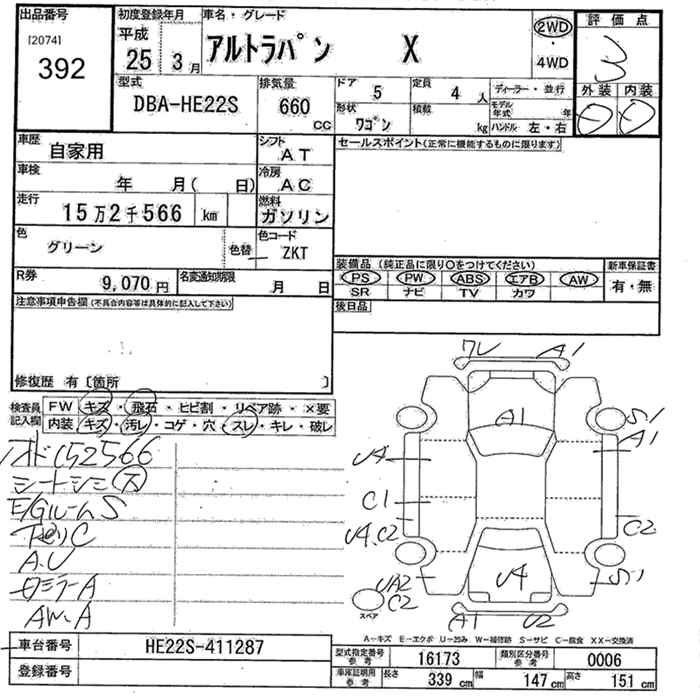 出品番号
[2074]
392
初度登録年月
平成
25年 3月
車名・グレード
アルトラパン X
2WD
・
4WD
評価点
3
外装 内装
型式
DBA-HE22S
排気量
660
cc
ドア 5
定員 4 人
形状 ワゴン
積載 kg
ディーラー・並行
モデル年式 年
ハンドル 左・右
車歴 自家用
シフト AT
車検 年 月( 日)
冷房 AC
走行 15万2千566 km
燃料 ガソリン
色 グリーン
色替
色コード ZKT
R券 9,070円
名変通知期限 月 日
セールスポイント(正常に機能するものに限ります)
装備品 (純正品に限り○をつけてください)
PS ・ PW ・ ABS ・ エアB ・ AW ・
SR ナビ TV カワ
新車保証書
有・無
後日品
注意事項申告欄(不具合内容等は具体的に記入して下さい)
修復歴 有〔箇所 〕
検査員記入欄
FW キズ・飛石・ヒビ割・リペア跡・×要
内装 キズ・汚レ・コゲ・穴・スレ・キレ・破レ
152566
シートシミ 大
E/GルームS
C
A.U
A
AW.A
ワレ A1
A1
S1
A1
U4
C1
U4.C2
C2
UA2
C2
S1
U4
A1 U2
スペア
A-キズ E-エクボ U-凹み W-補修跡 S-サビ C-腐食 XX-交換済
車台番号 HE22S-411287
登録番号
型式指定番号 参考 16173
類別区分番号 参考 0006
車庫証明用 参考
長さ 339 cm
幅 147 cm
高さ 151 cm